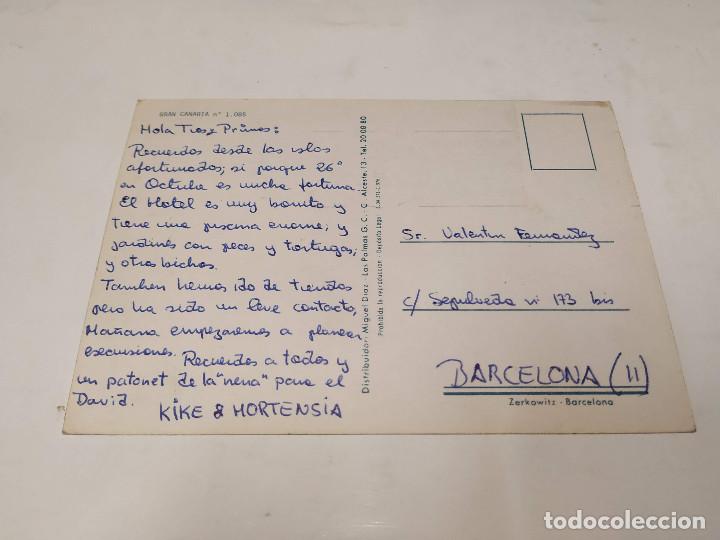 GRAN CANARIA nº 1.085
Hola Tios y Primos:
Recuerdos desde las islas
afortunadas; si porque 26º
en Octubre es mucha fortuna.
El Hotel es muy bonito y
tiene una piscina enorme; y
jardines con peces y tortugas;
y otros bichos.
Tambien hemos ido de tiendas
pero ha sido un leve contacto,
Mañana empezaremos a planear
escursiones. Recuerdos a todos y
un patonet de la "nena" para el
David.
KIKE & HORTENSIA
Distribuidor: Miguel Diaz - Las Palmas G. C. - C. Alceste, 13 - Tel. 20 08 80
Prohibida la reproduccion - Deposito Legal
Sr. Valentin Fernandez
c/ Sepulveda nº 173 bis
BARCELONA (11)
Zerkowitz - Barcelona
todocoleccion.net